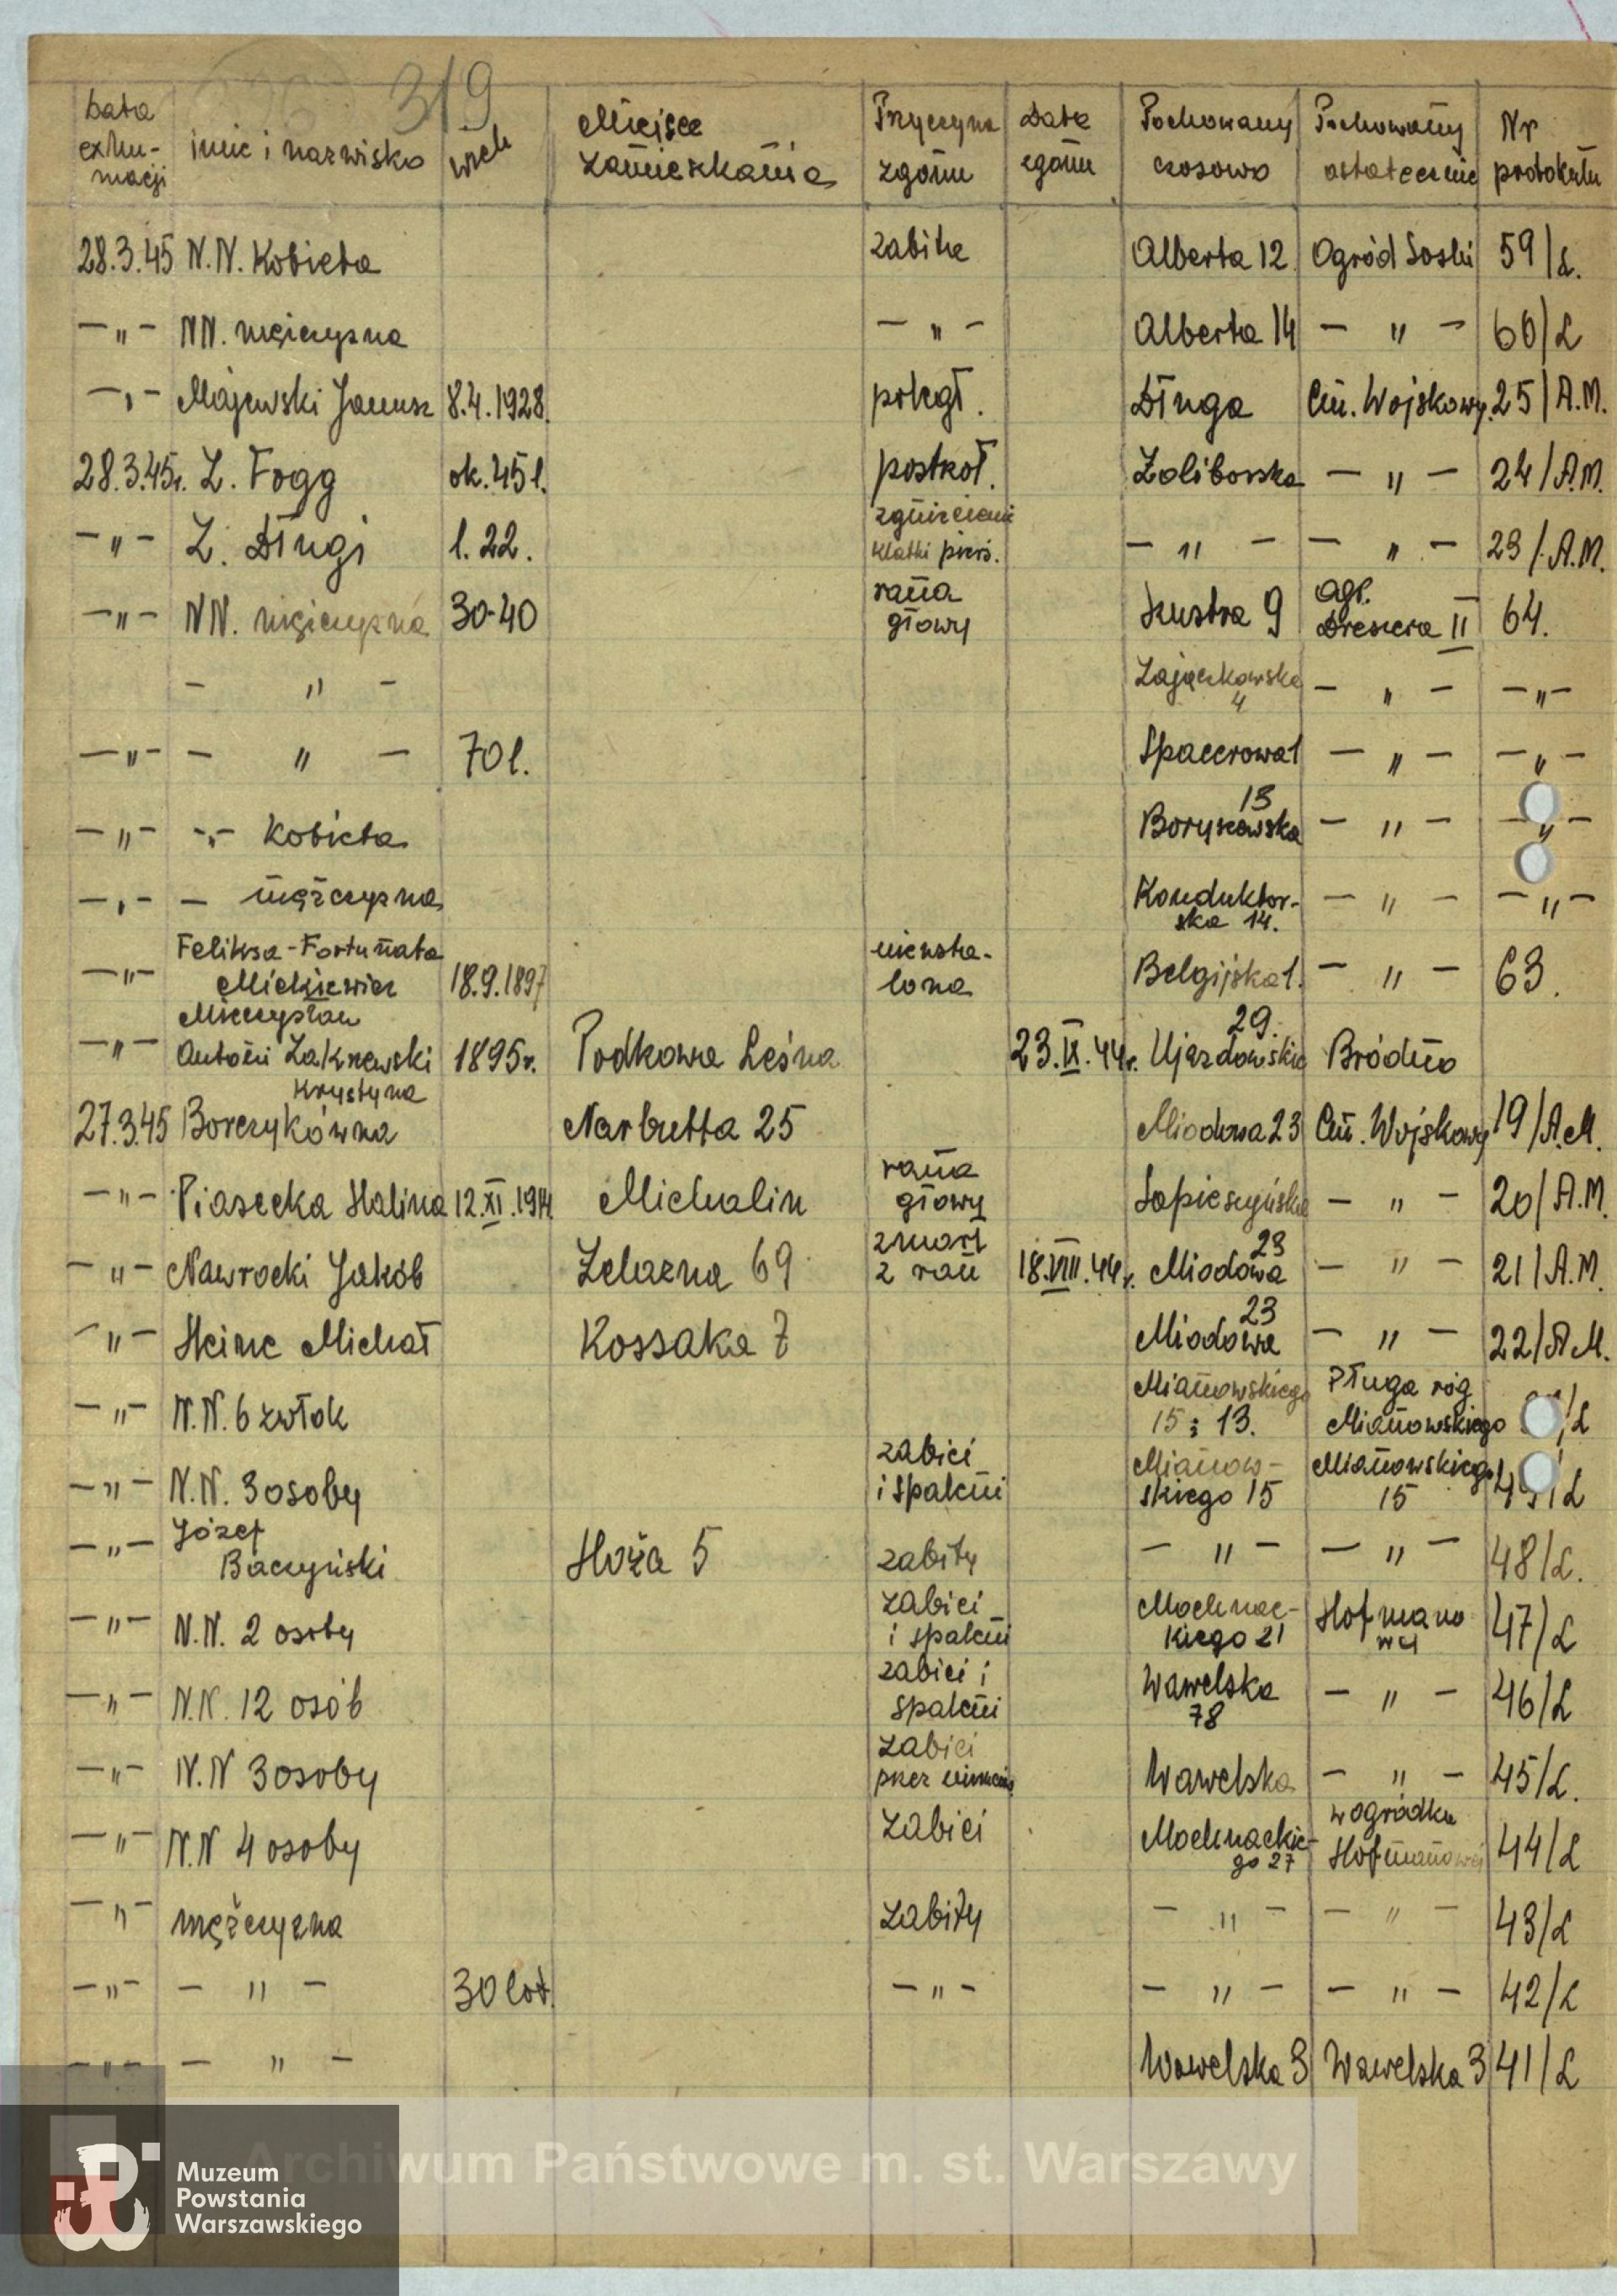 319
Data exhu-macji | imię i nazwisko | wiek | Miejsce zamieszkania | Przyczyna zgonu | Data zgonu | Pochowany czasowo | Pochowany ostatecznie | Nr protokułu
28.3.45 N.N. Kobieta zabita Alberta 12 Ogród Saski 59/L.
—„— NN. mężczyzna —„— Alberta 14 —„— 60/L
—„— Majewski Janusz 8.4.1928. poległ. Długa Cm. Wojskowy. 25/A.M.
28.3.45r. Z. Fogg ok. 45 l. postrzoł. Zoliborska —„— 24/A.M.
—„— Z. Długi l. 22. zgniecienie klatki piers. —„— —„— 23/A.M.
—„— NN. mężczyzna 30-40 rana głowy Szustra 9 Ogr. Dreszera II 64.
—„— Zajączkowska 4 —„— —„—
—„— —„— 70 l. Spacerowa 1 —„— —„—
—„— —„— Kobieta Boryszewska 13 —„— —„—
—„— — mężczyzna Konduktor-ska 14. —„— —„—
—„— Feliksa-Fortunata Mickiewicz 18.9.1897 nieusta-lona Belgijska 1. —„— 63.
—„— Mieczysław Antoni Zakrzewski 1895r. Podkowa Leśna 23.IX.44r. Ujazdowskie 29. Bródno
27.3.45 Krystyna Borczykówna Narbutta 25 Miodowa 23 Cm. Wojskowy 19/A.M.
—„— Piasecka Halina 12.XI.1914 Michalin rana głowy Sapieżyńska —„— 20/A.M.
—„— Nawrocki Jakób Żelazna 69 zmarł z ran 18.VIII.44r. Miodowa 23 —„— 21/A.M.
—„— Heinc Michał Kossaka 7 Miodowa 23 —„— 22/A.M.
—„— N.N. 6 zwłok Mianowskiego 15 i 13. Pługa róg Mianowskiego /L
—„— N.N. 3 osoby zabici i spaleni Mianow-skiego 15 Mianowskiego 15 /L
—„— Józef Baczyński Hoża 5 zabity —„— —„— 48/L.
—„— N.N. 2 osoby zabici i spaleni Mochnac-kiego 21 Hofmano wej 47/L
—„— N.N. 12 osób zabici i spaleni Wawelska 78 —„— 46/L
—„— N.N 3 osoby zabici przez niemców Wawelska —„— 45/L.
—„— N.N 4 osoby zabici Mochnackie-go 27 w ogródku Hofmanowej 44/L
—„— mężczyzna zabity —„— —„— 43/L
—„— —„— 30 lat. —„— —„— —„— 42/L
—„— —„— Wawelska 3 Wawelska 3 41/L
Archiwum Państwowe m. st. Warszawy
Muzeum
Powstania
Warszawskiego